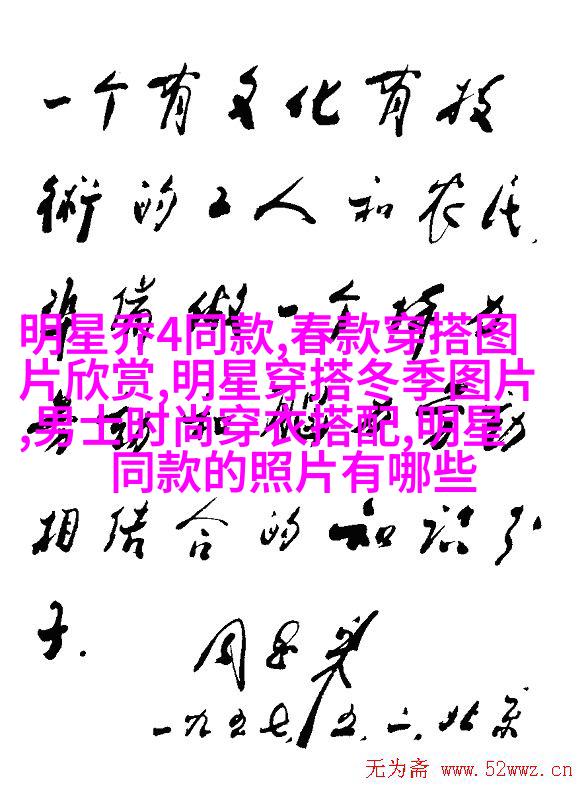 一个有文化有技
術的工人和农民,
准備做一个
明星乔4同款,春款穿搭图
片欣赏,明星穿搭冬季图片
,男士时尚穿衣搭配,明星
同款的照片有哪些
相结合的知識分
子.
周恩来
一九五七,五,一,北京
无为斋 www.52wwz.cn